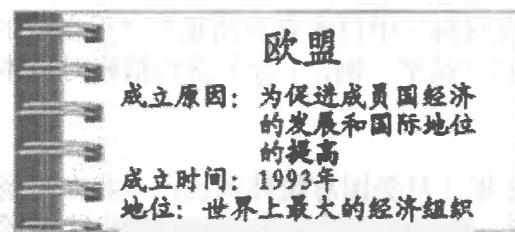 欧盟
成立原因：为促进成员国经济
的发展和国际地位
的提高
成立时间：1993年
地位：世界上最大的经济组织